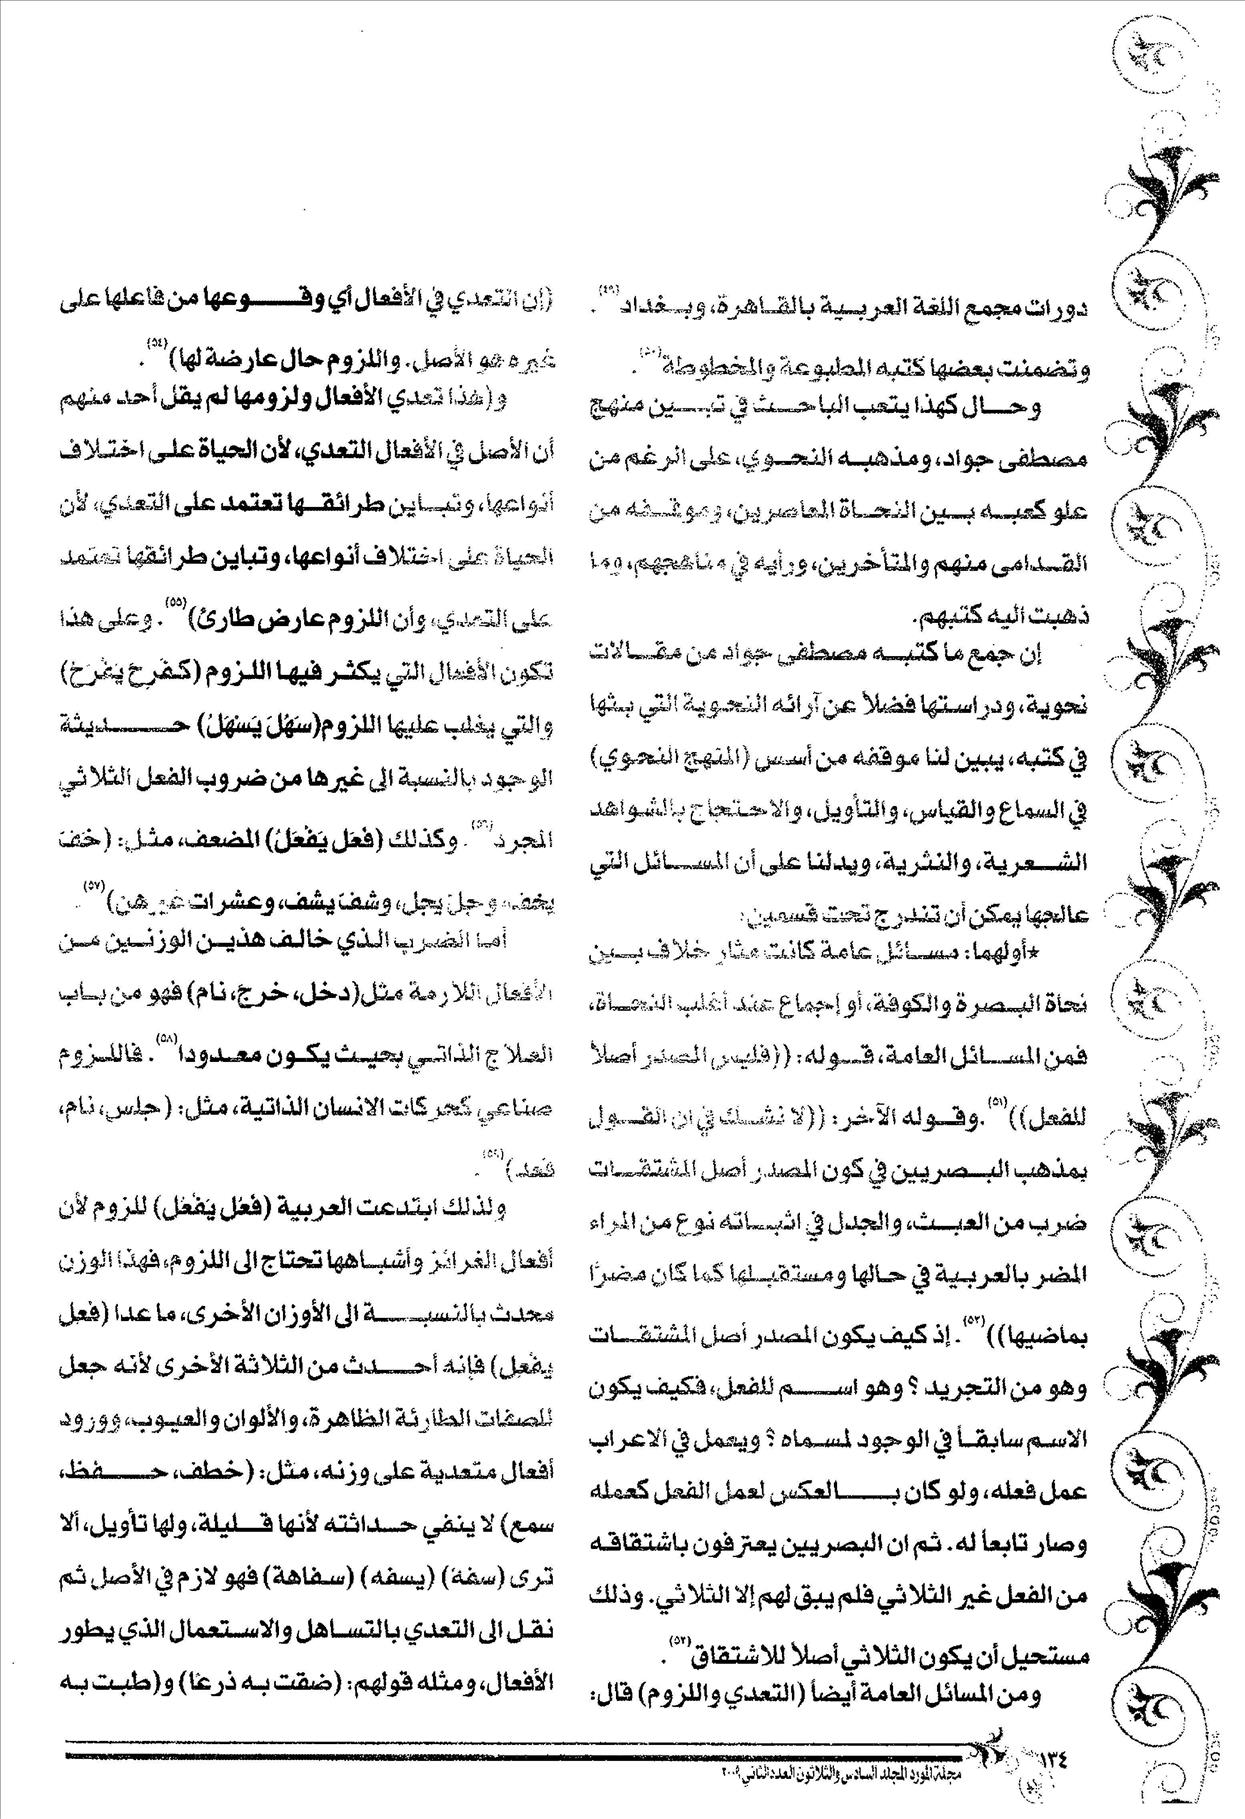 دورات مجمع اللغة العربية بالقاهرة، وبغداد(٤٩).
وتضمنت بعضها كتبه المطبوعة والمخطوطة(٥٠).
وحال كهذا يتعب الباحث في تبين منهج
مصطفى جواد، ومذهبه النحوي، على الرغم من
علو كعبه بين النحاة المعاصرين، وموقفه من
القدامى منهم والمتأخرين، ورأيه في مناهجهم، وما
ذهبت اليه كتبهم.
إن جمع ما كتبه مصطفى جواد من مقالات
نحوية، ودراستها فضلاً عن آرائه النحوية التي بثها
في كتبه، يبين لنا موقفه من أسس (المنهج النحوي)
في السماع والقياس، والتأويل، والاحتجاج بالشواهد
الشعرية، والنثرية، ويدلنا على أن المسائل التي
عالجها يمكن أن تندرج تحت قسمين:
*أولهما: مسائل عامة كانت مثار خلاف بين
نحاة البصرة والكوفة، أو إجماع عند أغلب النحاة،
فمن المسائل العامة، قوله: ((فليس المصدر أصلاً
للفعل))(٥١). وقوله الآخر: ((لا نشك في ان القول
بمذهب البصريين في كون المصدر أصل المشتقات
ضرب من العبث، والجدل في اثباته نوع من المراء
المضر بالعربية في حالها ومستقبلها كما كان مضرًا
بماضيها))(٥٢). إذ كيف يكون المصدر أصل المشتقات
وهو من التجريد؟ وهو اسم للفعل، فكيف يكون
الاسم سابقاً في الوجود لمسماه؟ ويعمل في الاعراب
عمل فعله، ولو كان بالعكس لعمل الفعل كعمله
وصار تابعاً له. ثم ان البصريين يعترفون باشتقاقه
من الفعل غير الثلاثي فلم يبق لهم إلا الثلاثي. وذلك
مستحيل أن يكون الثلاثي أصلاً للاشتقاق(٥٣).
ومن المسائل العامة أيضاً (التعدي واللزوم) قال:
(إن التعدي في الأفعال أي وقوعها من فاعلها على
غيره هو الأصل. واللزوم حال عارضة لها)(٥٤).
و(هذا تعدي الأفعال ولزومها لم يقل أحد منهم
أن الأصل في الأفعال التعدي، لأن الحياة على اختلاف
أنواعها، وتباين طرائقها تعتمد على التعدي، لأن
الحياة على اختلاف أنواعها، وتباين طرائقها تعتمد
على التعدي، وأن اللزوم عارض طارئ)(٥٥). وعلى هذا
تكون الأفعال التي يكثر فيها اللزوم (كفَرِح يَفْرَح)
والتي يغلب عليها اللزوم(سَهُلَ يَسْهُلُ) حديثة
الوجود بالنسبة الى غيرها من ضروب الفعل الثلاثي
المجرد(٥٦). وكذلك (فعَل يَفْعَلُ) المضعف، مثل: (خفَ
يخف، وجل يجل، وشف يشف، وعشرات غيرهن)(٥٧).
أما الضرب الذي خالف هذين الوزنين من
الأفعال اللازمة مثل(دخل، خرج، نام) فهو من باب
العلاج الذاتي بحيث يكون معدودا(٥٨). فاللزوم
صناعي كحركات الانسان الذاتية، مثل: (جلس، نام،
قعد)(٥٩).
ولذلك ابتدعت العربية (فعُل يَفْعُل) للزوم لأن
أفعال الغرائز وأشباهها تحتاج الى اللزوم، فهذا الوزن
محدث بالنسبة الى الأوزان الأخرى، ما عدا (فعل
يفعل) فإنه أحدث من الثلاثة الأخرى لأنه جعل
للصفات الطارئة الظاهرة، والألوان والعيوب، وورود
أفعال متعدية على وزنه، مثل: (خطف، حفظ،
سمع) لا ينفي حداثته لأنها قليلة، ولها تأويل، ألا
ترى (سفهَ) (يسفه) (سفاهة) فهو لازم في الأصل ثم
نقل الى التعدي بالتساهل والاستعمال الذي يطور
الأفعال، ومثله قولهم: (ضقت به ذرعًا) و(طبت به
١٣٤
مجلة المورد المجلد السادس والثلاثون العدد الثاني ٢٠٠٩